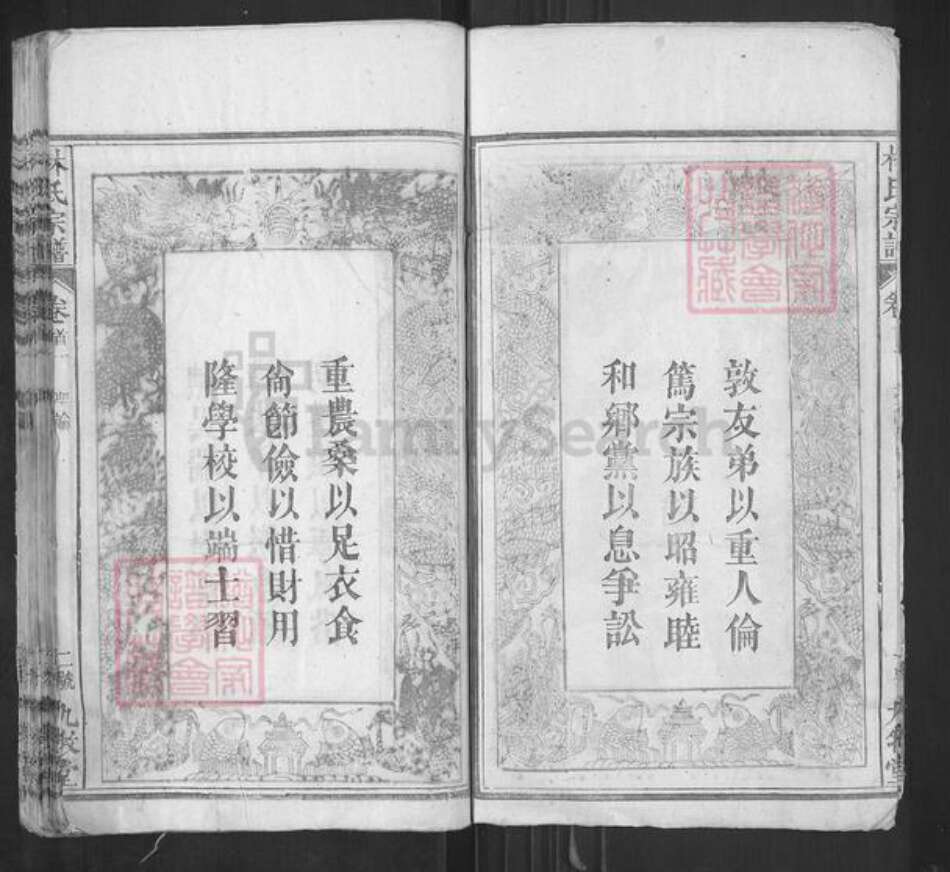 敦友弟以重人倫
篤宗族以昭雍睦
和鄉黨以息爭訟
重農桑以足衣食
尙節儉以惜財用
隆學校以端士習
林氏宗譜
卷首一
二號
九牧堂
FamilySearch